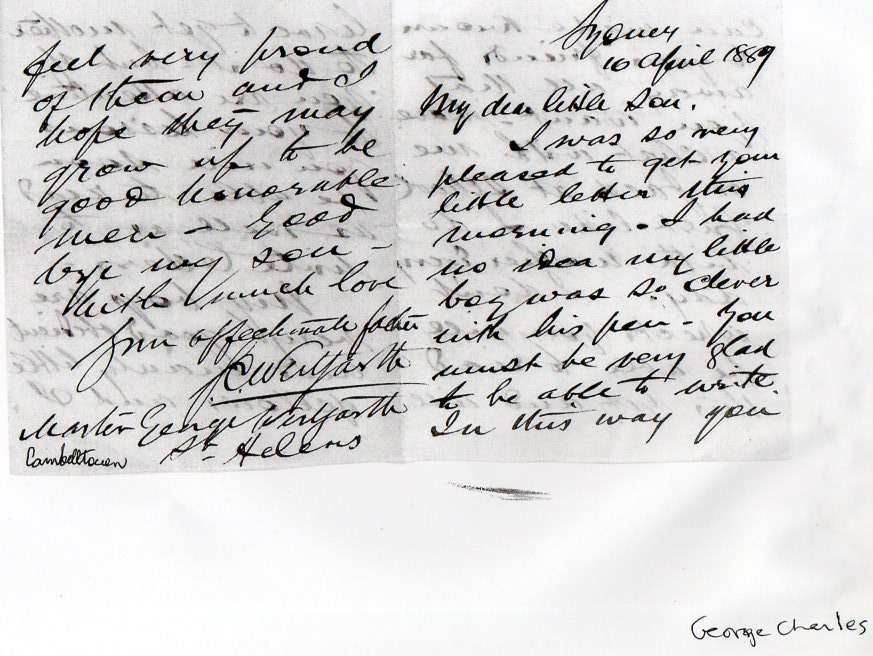 Sydney
10 April 1889
My dear little son.
I was so very
pleased to get your
little letter this
morning. I had
no idea my little
boy was so clever
with his pen - You
must be very glad
to be able to write
In this way you
feel very proud
of them and I
hope they may
grow up to be
good honorable
men - Good
bye my son -
With much love
Your affectionate father
Master George
St Helens
Cambelltown
George Charles